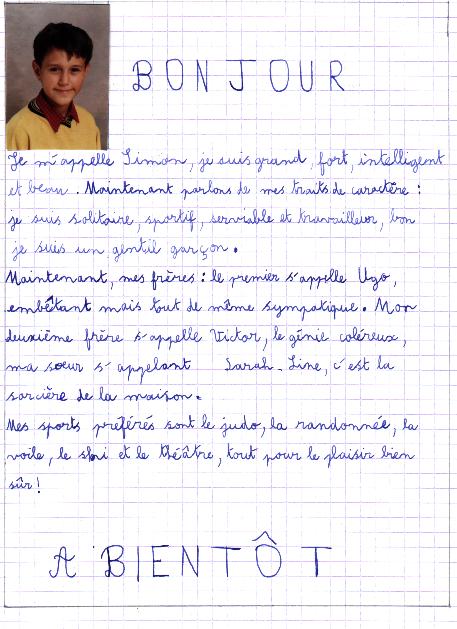 BONJOUR
Je m'appelle Simon, je suis grand, fort, intelligent
et beau. Maintenant parlons de mes traits de caractère :
je suis solitaire, sportif, serviable et travailleur, bon
je suis un gentil garçon.
Maintenant, mes frères : le premier s'appelle Ugo,
embêtant mais tout de même sympatique. Mon
deuxième frère s'appelle Victor, le génie coléreux,
ma sœur s'appelant Sarah-Line, c'est la
sorcière de la maison.
Mes sports préférés sont le judo, la randonnée, la
voile, le ski et le théâtre, tout pour le plaisir bien
sûr !
A BIENTÔT